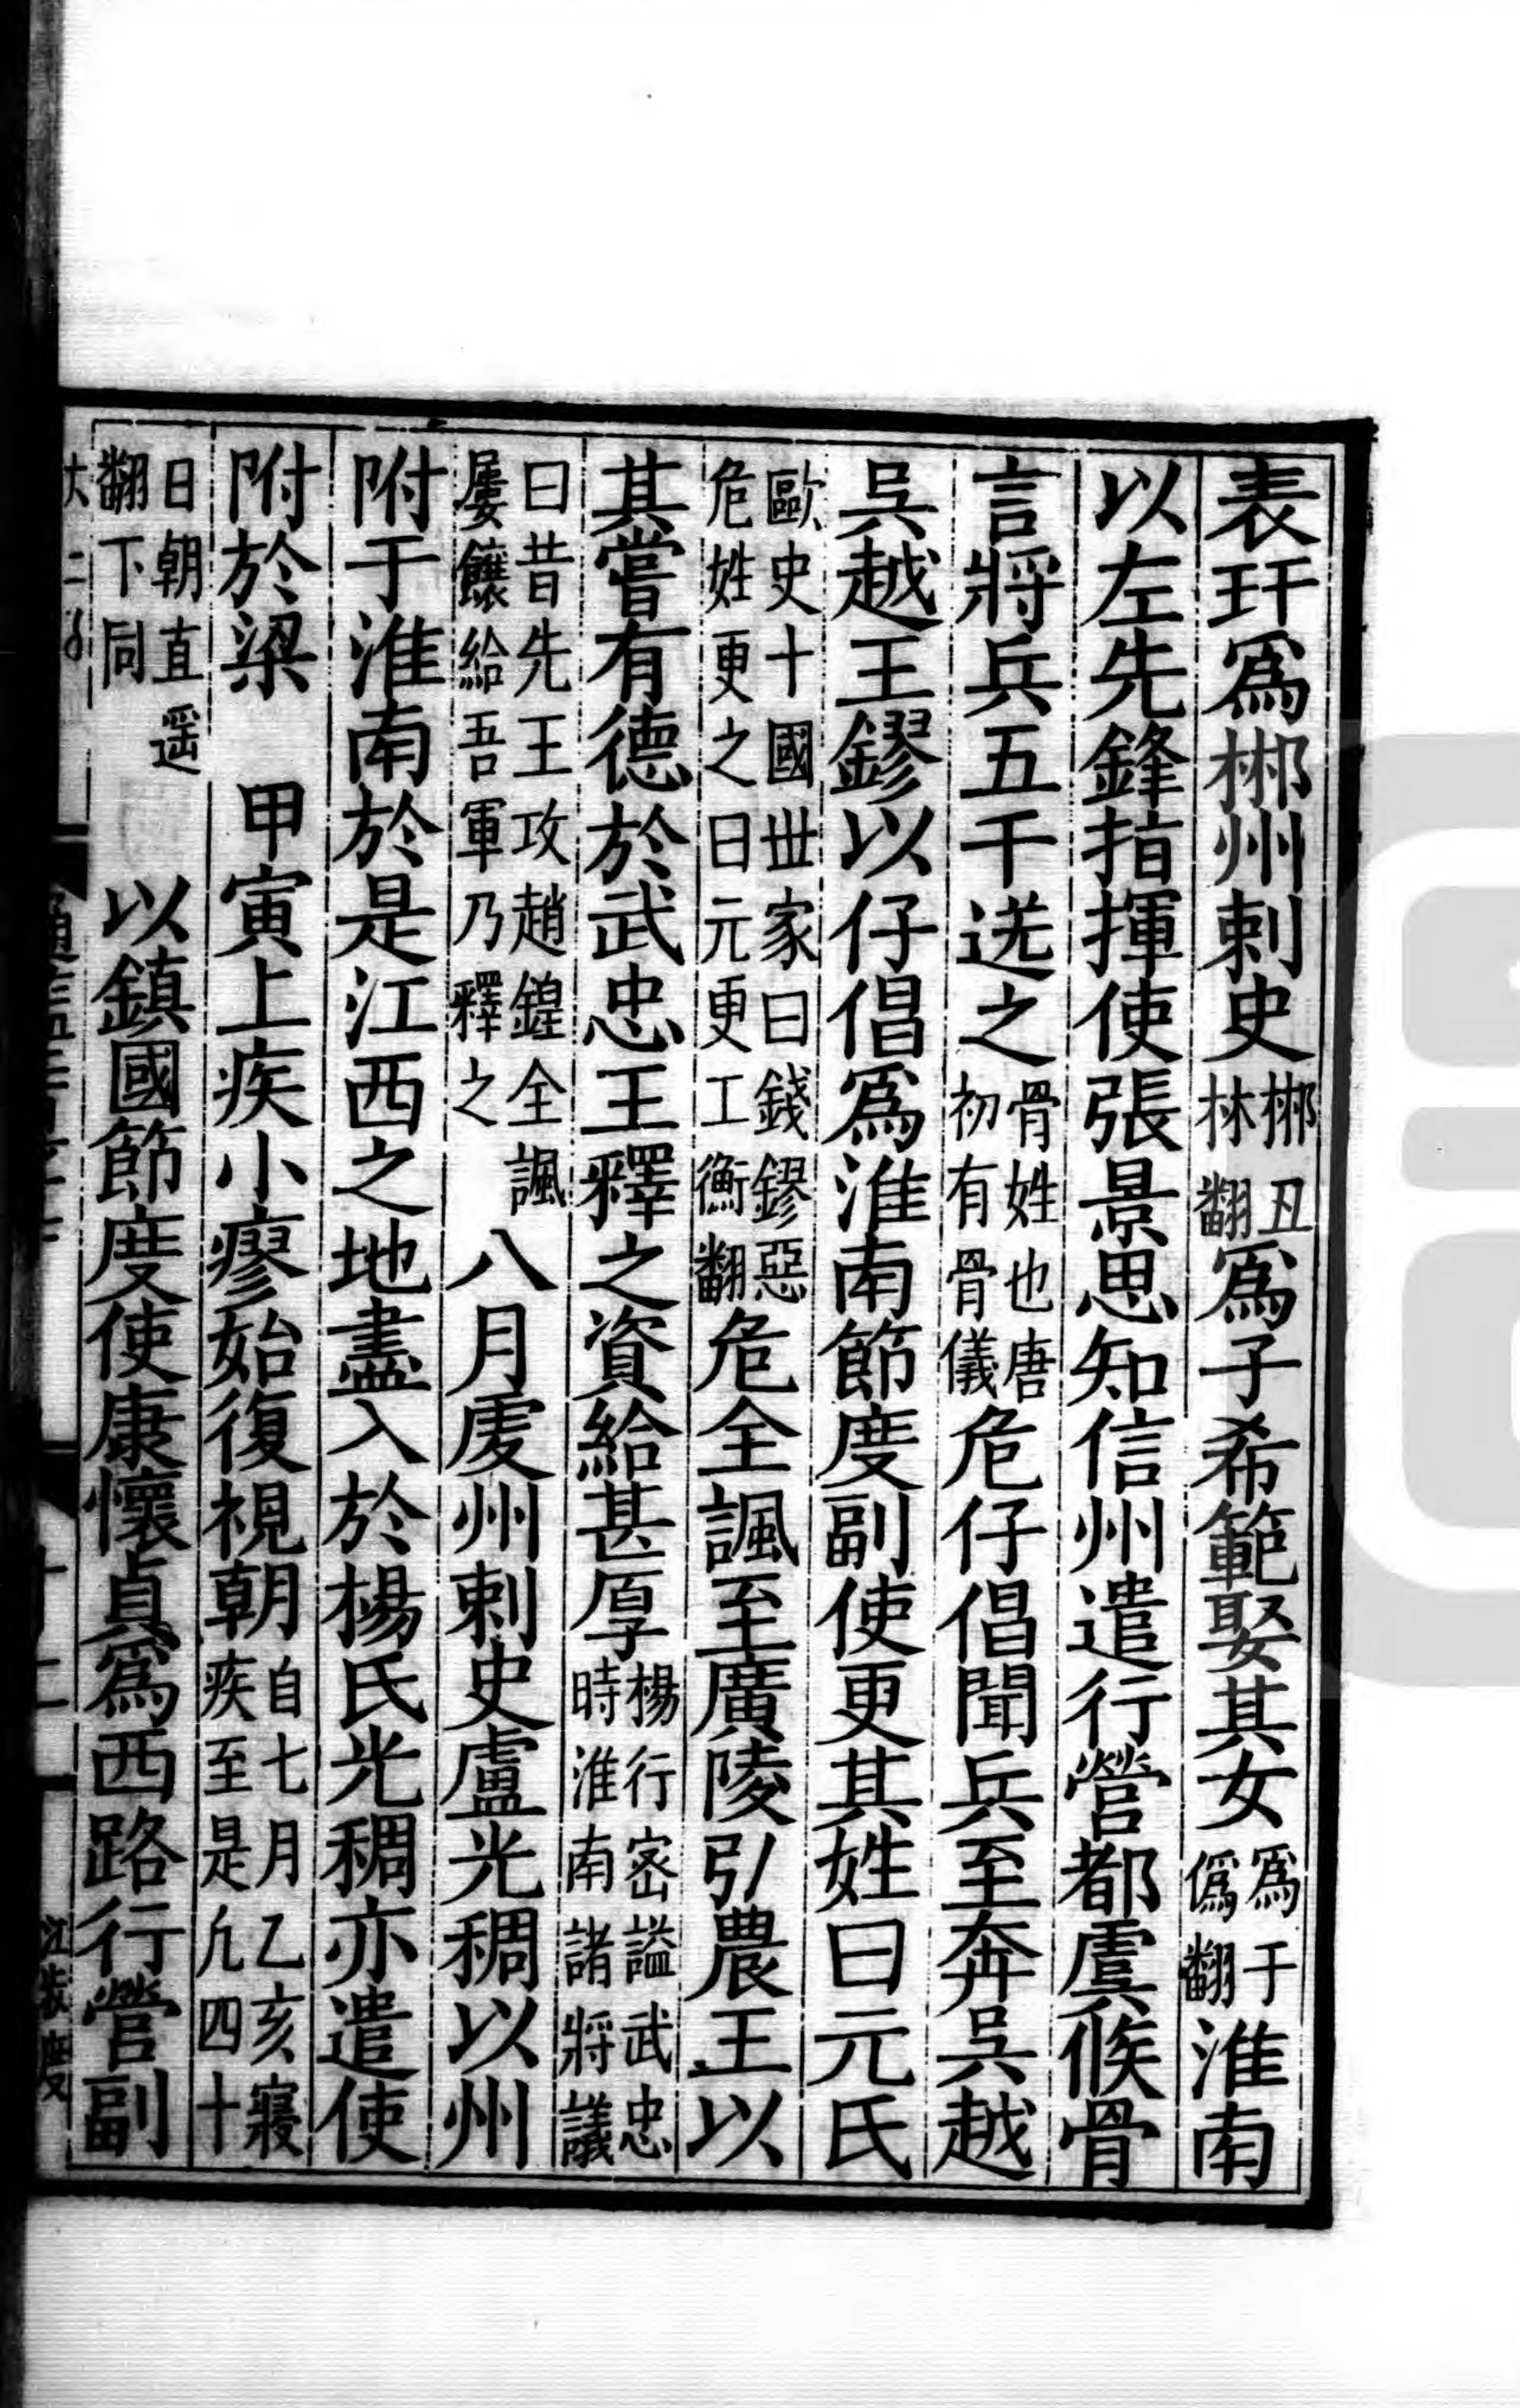 表玕爲郴州刺史郴丑林翻爲子希範娶其女爲于僞翻淮南
以左先鋒指揮使張景思知信州遣行營都虞候骨
言將兵五千送之骨姓也唐初有骨儀危仔倡聞兵至奔吳越
吳越王鏐以仔倡爲淮南節度副使更其姓曰元氏
歐史十國世家曰錢鏐惡危姓更之曰元更工衡翻危全諷至廣陵弘農王以
其嘗有德於武忠王釋之資給甚厚楊行密諡武忠時淮南諸將議
曰昔先王攻趙鍠全諷屢饟給吾軍乃釋之八月虔州刺史盧光稠以州
附于淮南於是江西之地盡入於楊氏光稠亦遣使
附於梁　甲寅上疾小瘳始復視朝自七月乙亥寢疾至是凡四十
日朝直遥翻下同　以鎮國節度使康懷貞爲西路行營副